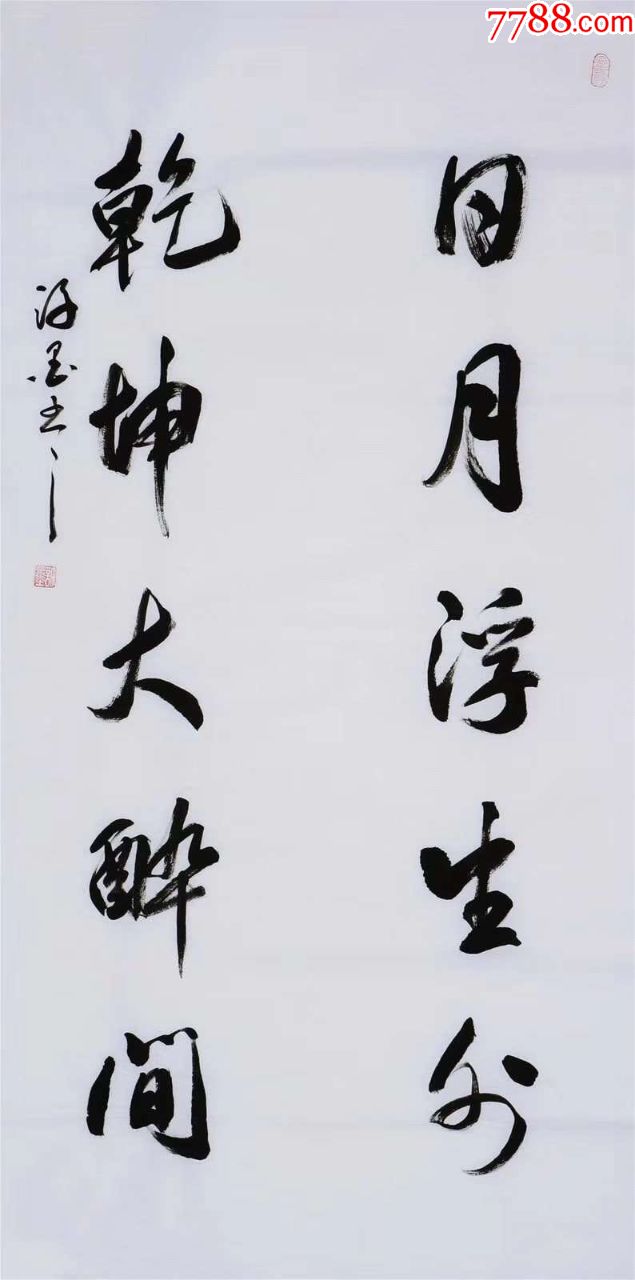 7788.com
日月浮生外
乾坤大醉間